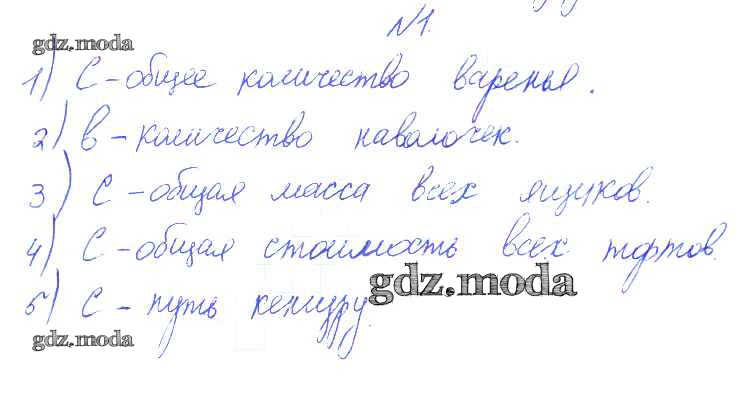 №1.
gdz.moda
1) С - общее количество варенья.
2) в - количество наволочек.
3) С - общая масса всех ящиков.
4) С - общая стоимость всех тортов.
gdz.moda
5) С - путь кенгуру.
gdz.moda